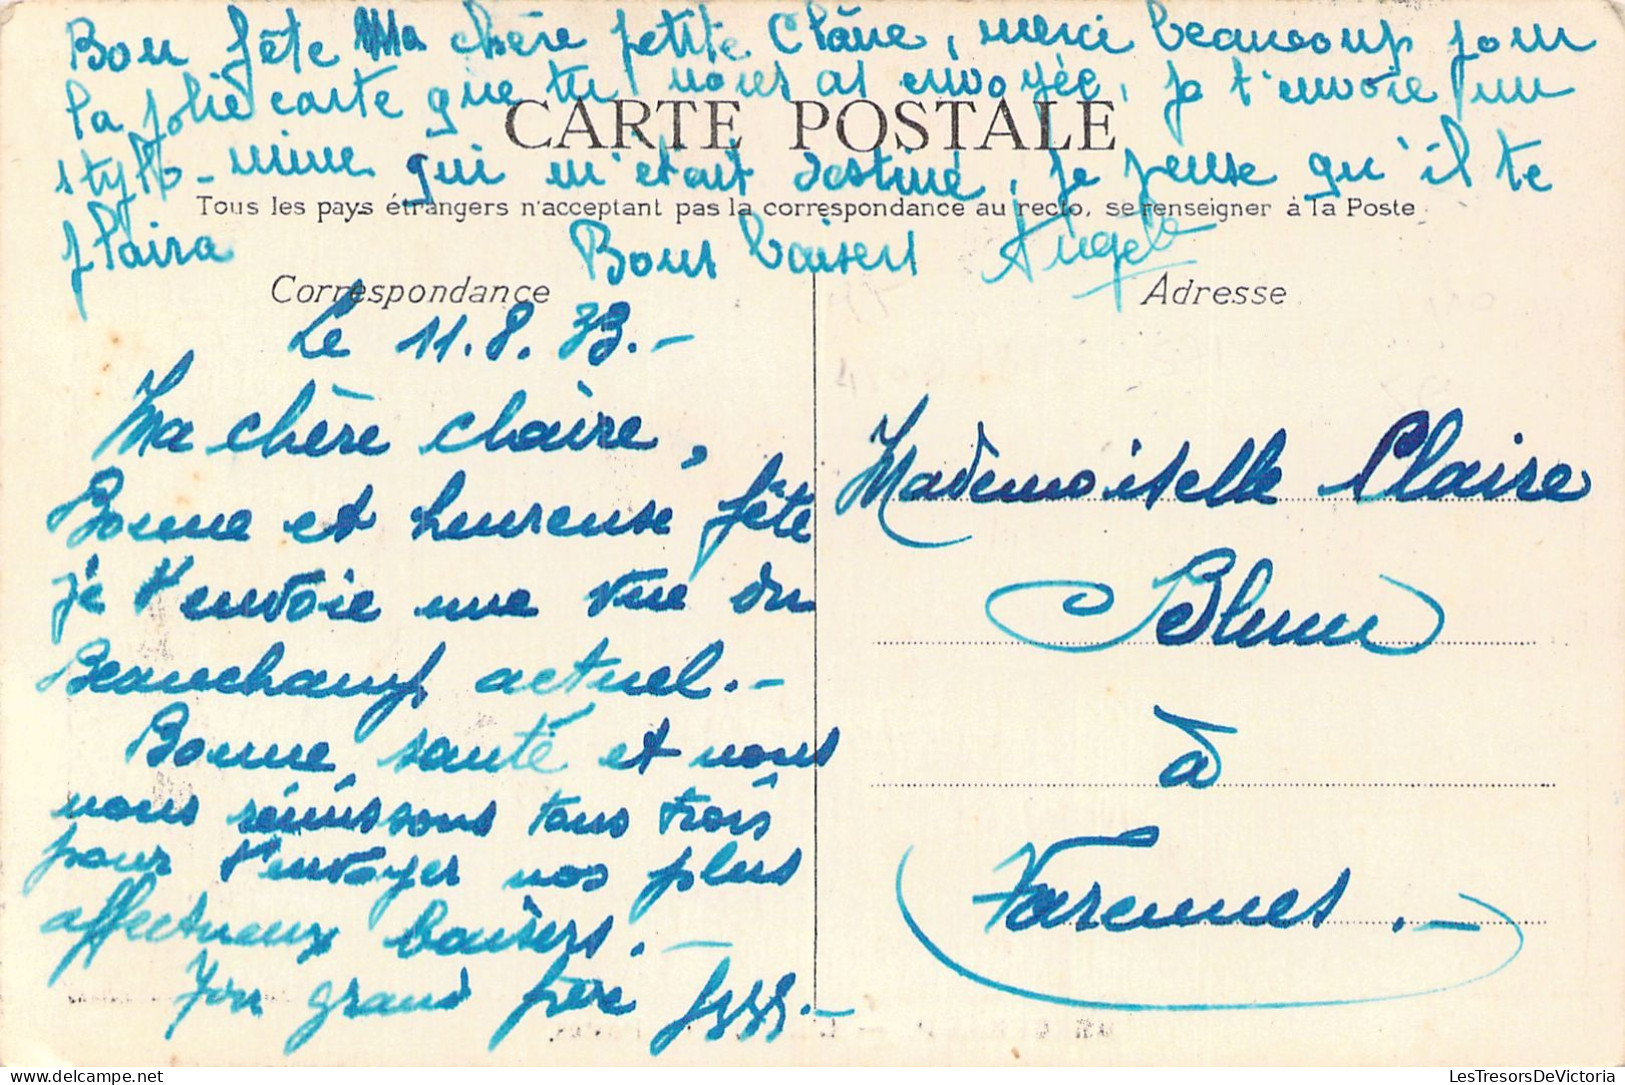 Bon fête Ma chère petite Claire, merci beaucoup pour
la jolie carte que tu nous as envoyée, je t'envoie un
stylo-mine qui m'était destiné, je pense qu'il te
plaira Bons baisers Angèle
CARTE POSTALE
Tous les pays étrangers n'acceptant pas la correspondance au recto, se renseigner à la Poste
Correspondance
Le 11.8.33.-
Ma chère Claire,
Bonne et heureuse fête
je t'envoie une vue du
Beauchamp actuel.-
Bonne santé et nous
nous réunissons tous trois
pour t'envoyer nos plus
affectueux baisers.-
Ton grand frère
Adresse
Mademoiselle Claire
Blum
à
Varennes.-
LesTresorsDeVictoria